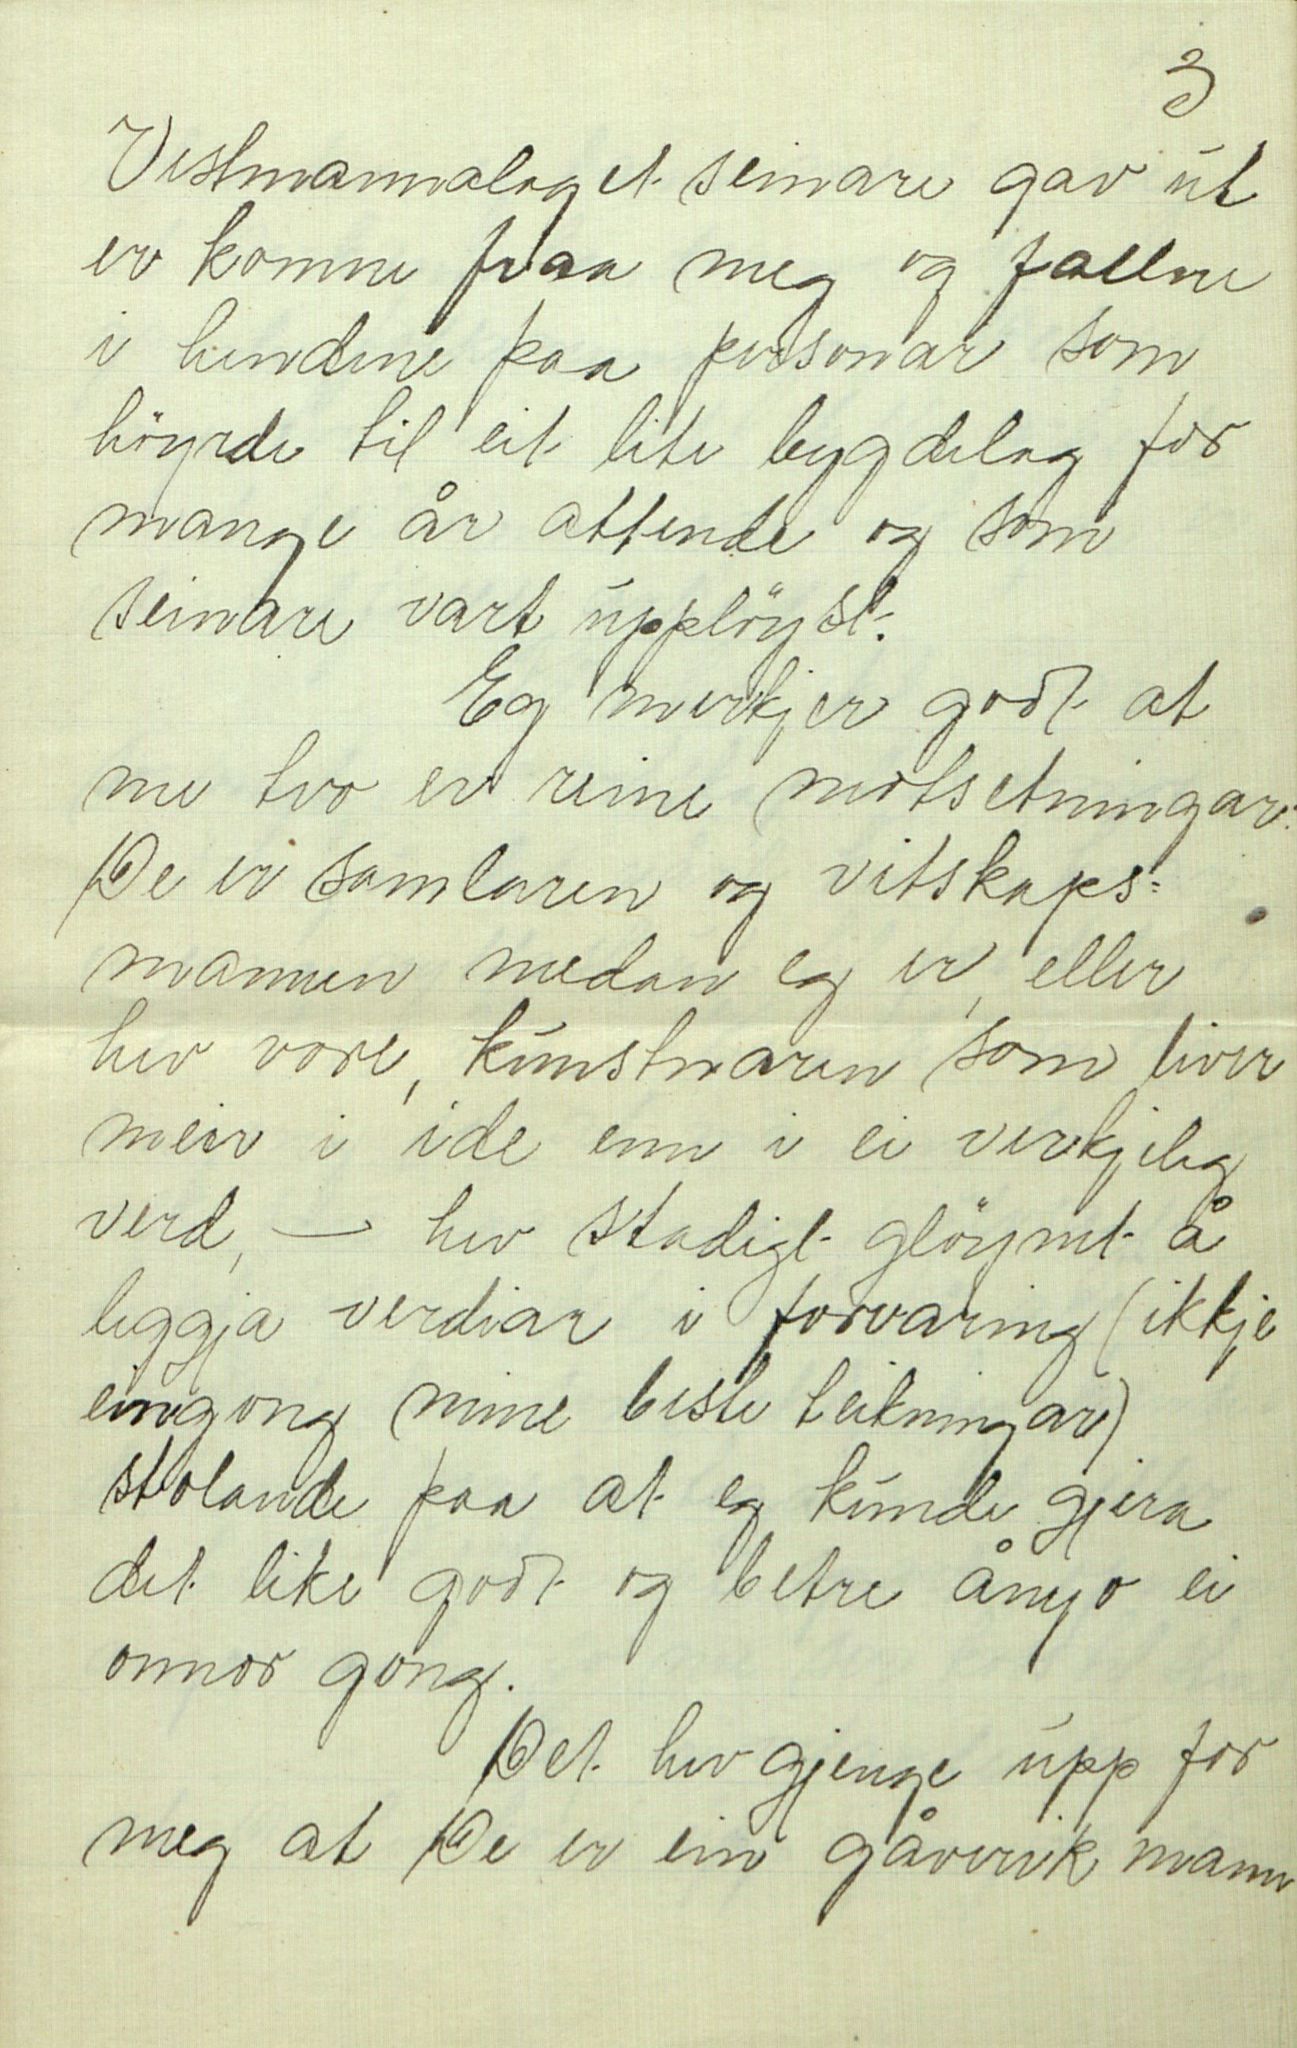 3
Vestmannalaget seinare gav út
er komne fraa meg og fallne
i hendene paa personar som
höyrde til eit lite bygdelag for
mange år attende og som
seinare vart upplöyst.
Eg merkjer godt at
me tvo er reine motsetningar.
De er samlaren og vitskaps-
mannen medan eg er, eller
hev vore, kunstnaren som liver
meir i ide enn i ei verkjeleg
verd, — hev stadigt glöymt å
leggja verdiar i forvaring (ikkje
eingong mine beste teikningar)
stolande paa at eg kunde gjera
det like godt og betre ånyo ei
onnor gong.
Det hev gjenge upp for
meg at De er ein gåverik mann